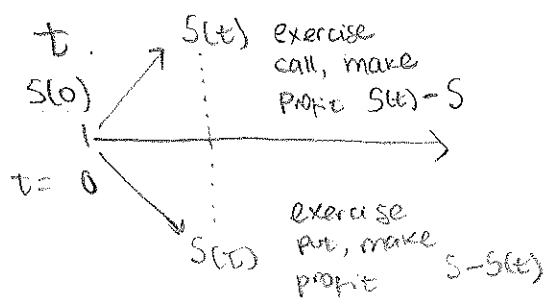 t.
S(t) exercise
call, make
profit S(t) - S
S(0)
t = 0
S(t)
exercise
put, make
profit S - S(t)